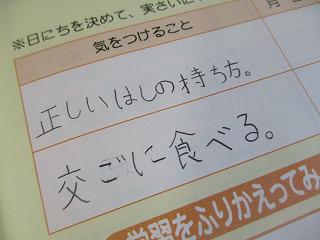 ※日にちを決めて、実さいに
気をつけること
月
正しいはしの持ち方。
交ごに食べる。
学習をふりかえってみ